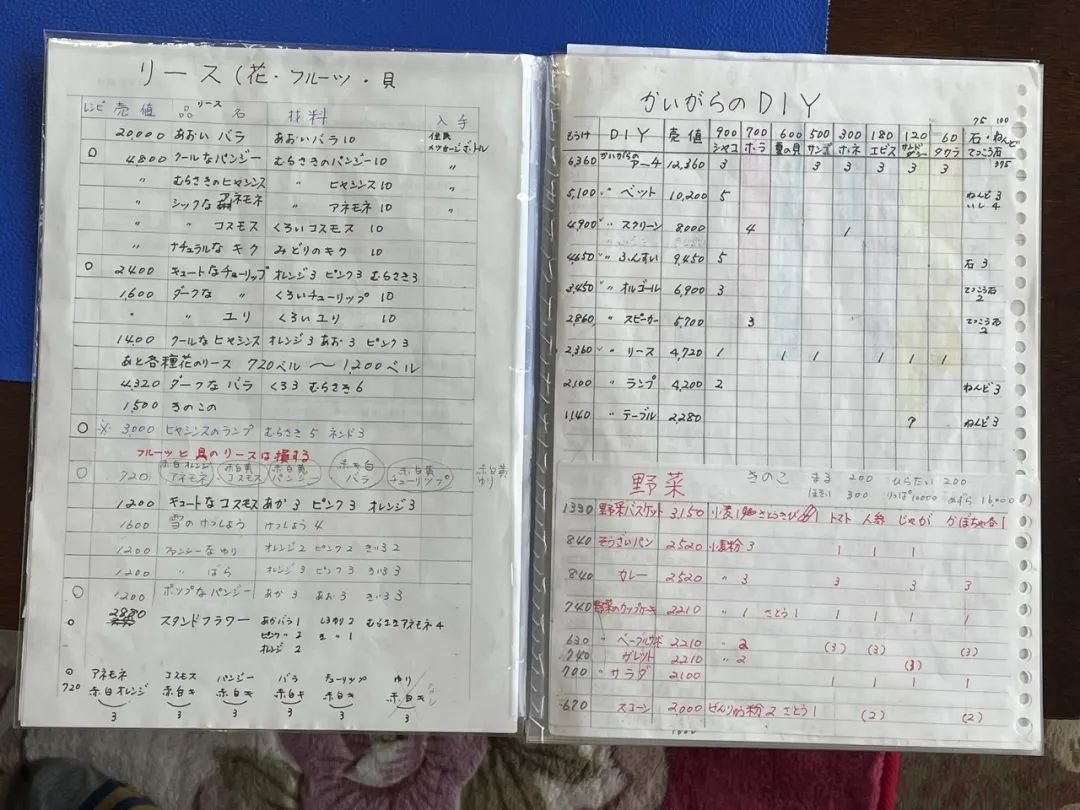 リース(花・フルーツ・貝
レシピ 売値 品 リース 名 材料 入手
20000 あおい バラ あおいバラ 10 住民 メッセージボトル
○ 4800 クールなパンジー むらさきのパンジー 10 〃
〃 むらさきのヒヤシンス 〃 ヒヤシンス 10 〃
〃 シックな アネモネ 〃 アネモネ 10 〃
〃 〃 コスモス くろいコスモス 10
〃 ナチュラルな キク みどりのキク 10
○ 2400 キュートなチューリップ オレンジ3 ピンク3 むらさき3
1,600 ダークな 〃 くろいチューリップ 10
〃 〃 ユリ くろいユリ 10
1400 クールな ヒヤシンス オレンジ3 あお3 ピンク3
あと各種花のリース 720ベル 〜 1,200ベル
4,320 ダークな バラ くろ3 むらさき6
1,500 きのこの
○ ※ 3,000 ヒヤシンスのランプ むらさき5 ネンド3
フルーツと貝のリースは損する
○ 720 赤白オレンジ アネモネ 赤白黄 コスモス 赤白黄 パンジー 赤キ白 バラ 赤白黄 チューリップ 赤白黄 ゆり
1,200 キュートなコスモス あか3 ピンク3 オレンジ3
1600 雪のけっしょう けっしょう4
1200 ファンシーな ゆり オレンジ2 ピンク2 きいろ2
1200 〃 ばら オレンジ3 ピンク3 きいろ3
○ 1200 ポップなパンジー あか3 あお3 きいろ3
○ 2880 スタンドフラワー あかバラ1 しろゆり2 アネモネ4
ピンク〃2 〃1
オレンジ2
○ アネモネ コスモス パンジー バラ チューリップ ゆり
720 赤白オレンジ 赤白キ 赤白キ 赤白キ 赤白キ 赤白キ
3 3 3 3 3 3
かいがらのDIY
75 100
もうけ DIY 売値 900 シャコ 700 ホラ 600 夏の貝 500 サンゴ 300 ホネ 180 エビス 120 サンドダラー 60 タカラ 石・ねんど てっこう石 375
6,360 かいがらの アーチ 12,360 3 3 3 3 3 3
5,100 〃 ベット 10,200 5 ねんど3 いし4
4,900 〃 スクリーン 8000 4 1
4650 〃 ふんすい 9,450 5 石3
3,450 〃 オルゴール 6,900 3 てっこう石2
2,860 〃 スピーカー 5,700 3 てっこう石2
2,360 〃 リース 4,720 1 1 1 1 1 1
2,100 〃 ランプ 4,200 2 ねんど3
1,140 〃 テーブル 2,280 9 ねんど3
野菜
きのこ まる 200 ひらたい 200
ほそい 300 りっぱ10000 めずら 16,000
1330 野菜バスケット 3150 小麦1 さとうきび1 トマト 人参 じゃが かぼちゃ各1
840 そうざいパン 2520 小麦粉3 1 1 1
840 カレー 2520 〃 3 3 3 3
740 野菜のカップケーキ 2210 〃 1 さとう1 1 1 1 1
630 〃 ベーグルサンド 2210 〃 2 (3) (3) (3)
740 〃 ガレット 2210 〃 2 (3)
700 〃 サラダ 2100 1 1 1 1
670 スコーン 2,000 ぜんりゅう粉2 さとう1 (2) (2)